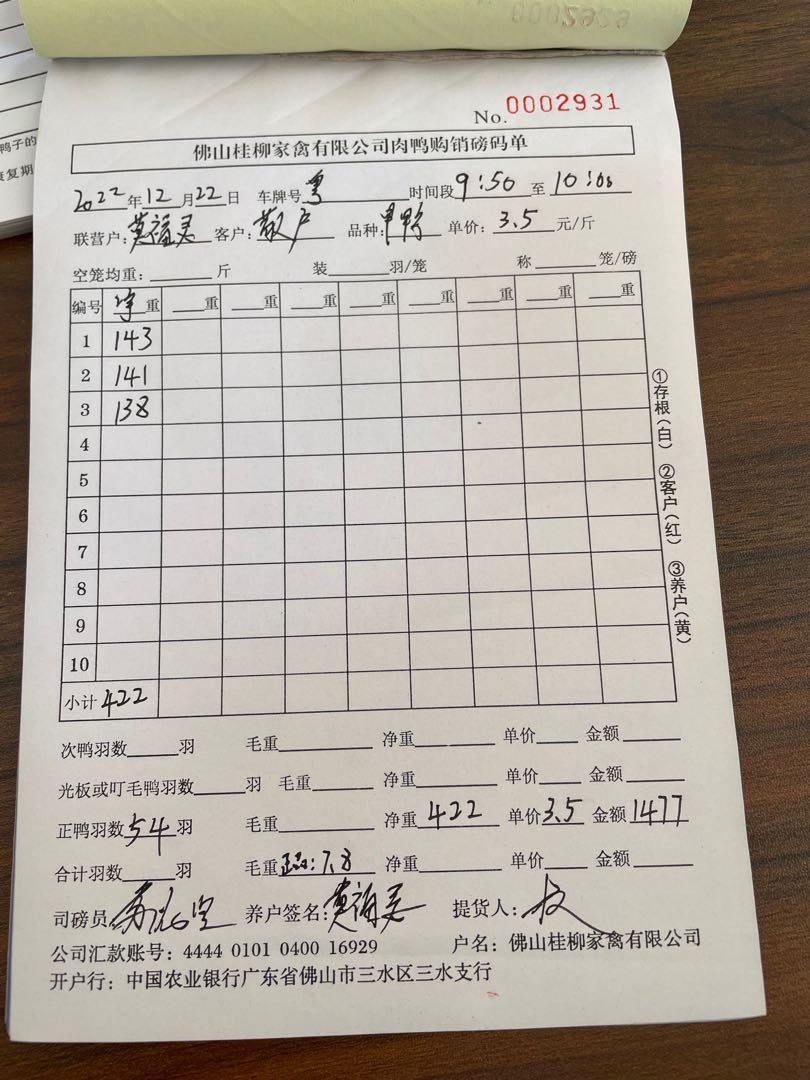 0002929
鸭子的
康复期
No. 0002931
佛山桂柳家禽有限公司肉鸭购销磅码单
2022年12月22日 车牌号粤 时间段9:50至10:08
联营户:莫福灵 客户:散户 品种:甲鸭 单价:3.5元/斤
空笼均重:______斤 装______羽/笼 称______笼/磅
编号 字重 __重 __重 __重 __重 __重 __重 __重 __重
1 143
2 141
3 138
4
5
6
7
8
9
10
小计 422
①存根(白) ②客户(红) ③养户(黄)
次鸭羽数____羽 毛重____ 净重____ 单价____ 金额____
光板或叮毛鸭羽数____羽 毛重____ 净重____ 单价____ 金额____
正鸭羽数54羽 毛重____ 净重422 单价3.5 金额1477
合计羽数____羽 毛重 :7.8 净重____ 单价____ 金额____
司磅员 养户签名:莫福灵 提货人:
公司汇款账号:4444 0101 0400 16929 户名:佛山桂柳家禽有限公司
开户行:中国农业银行广东省佛山市三水区三水支行